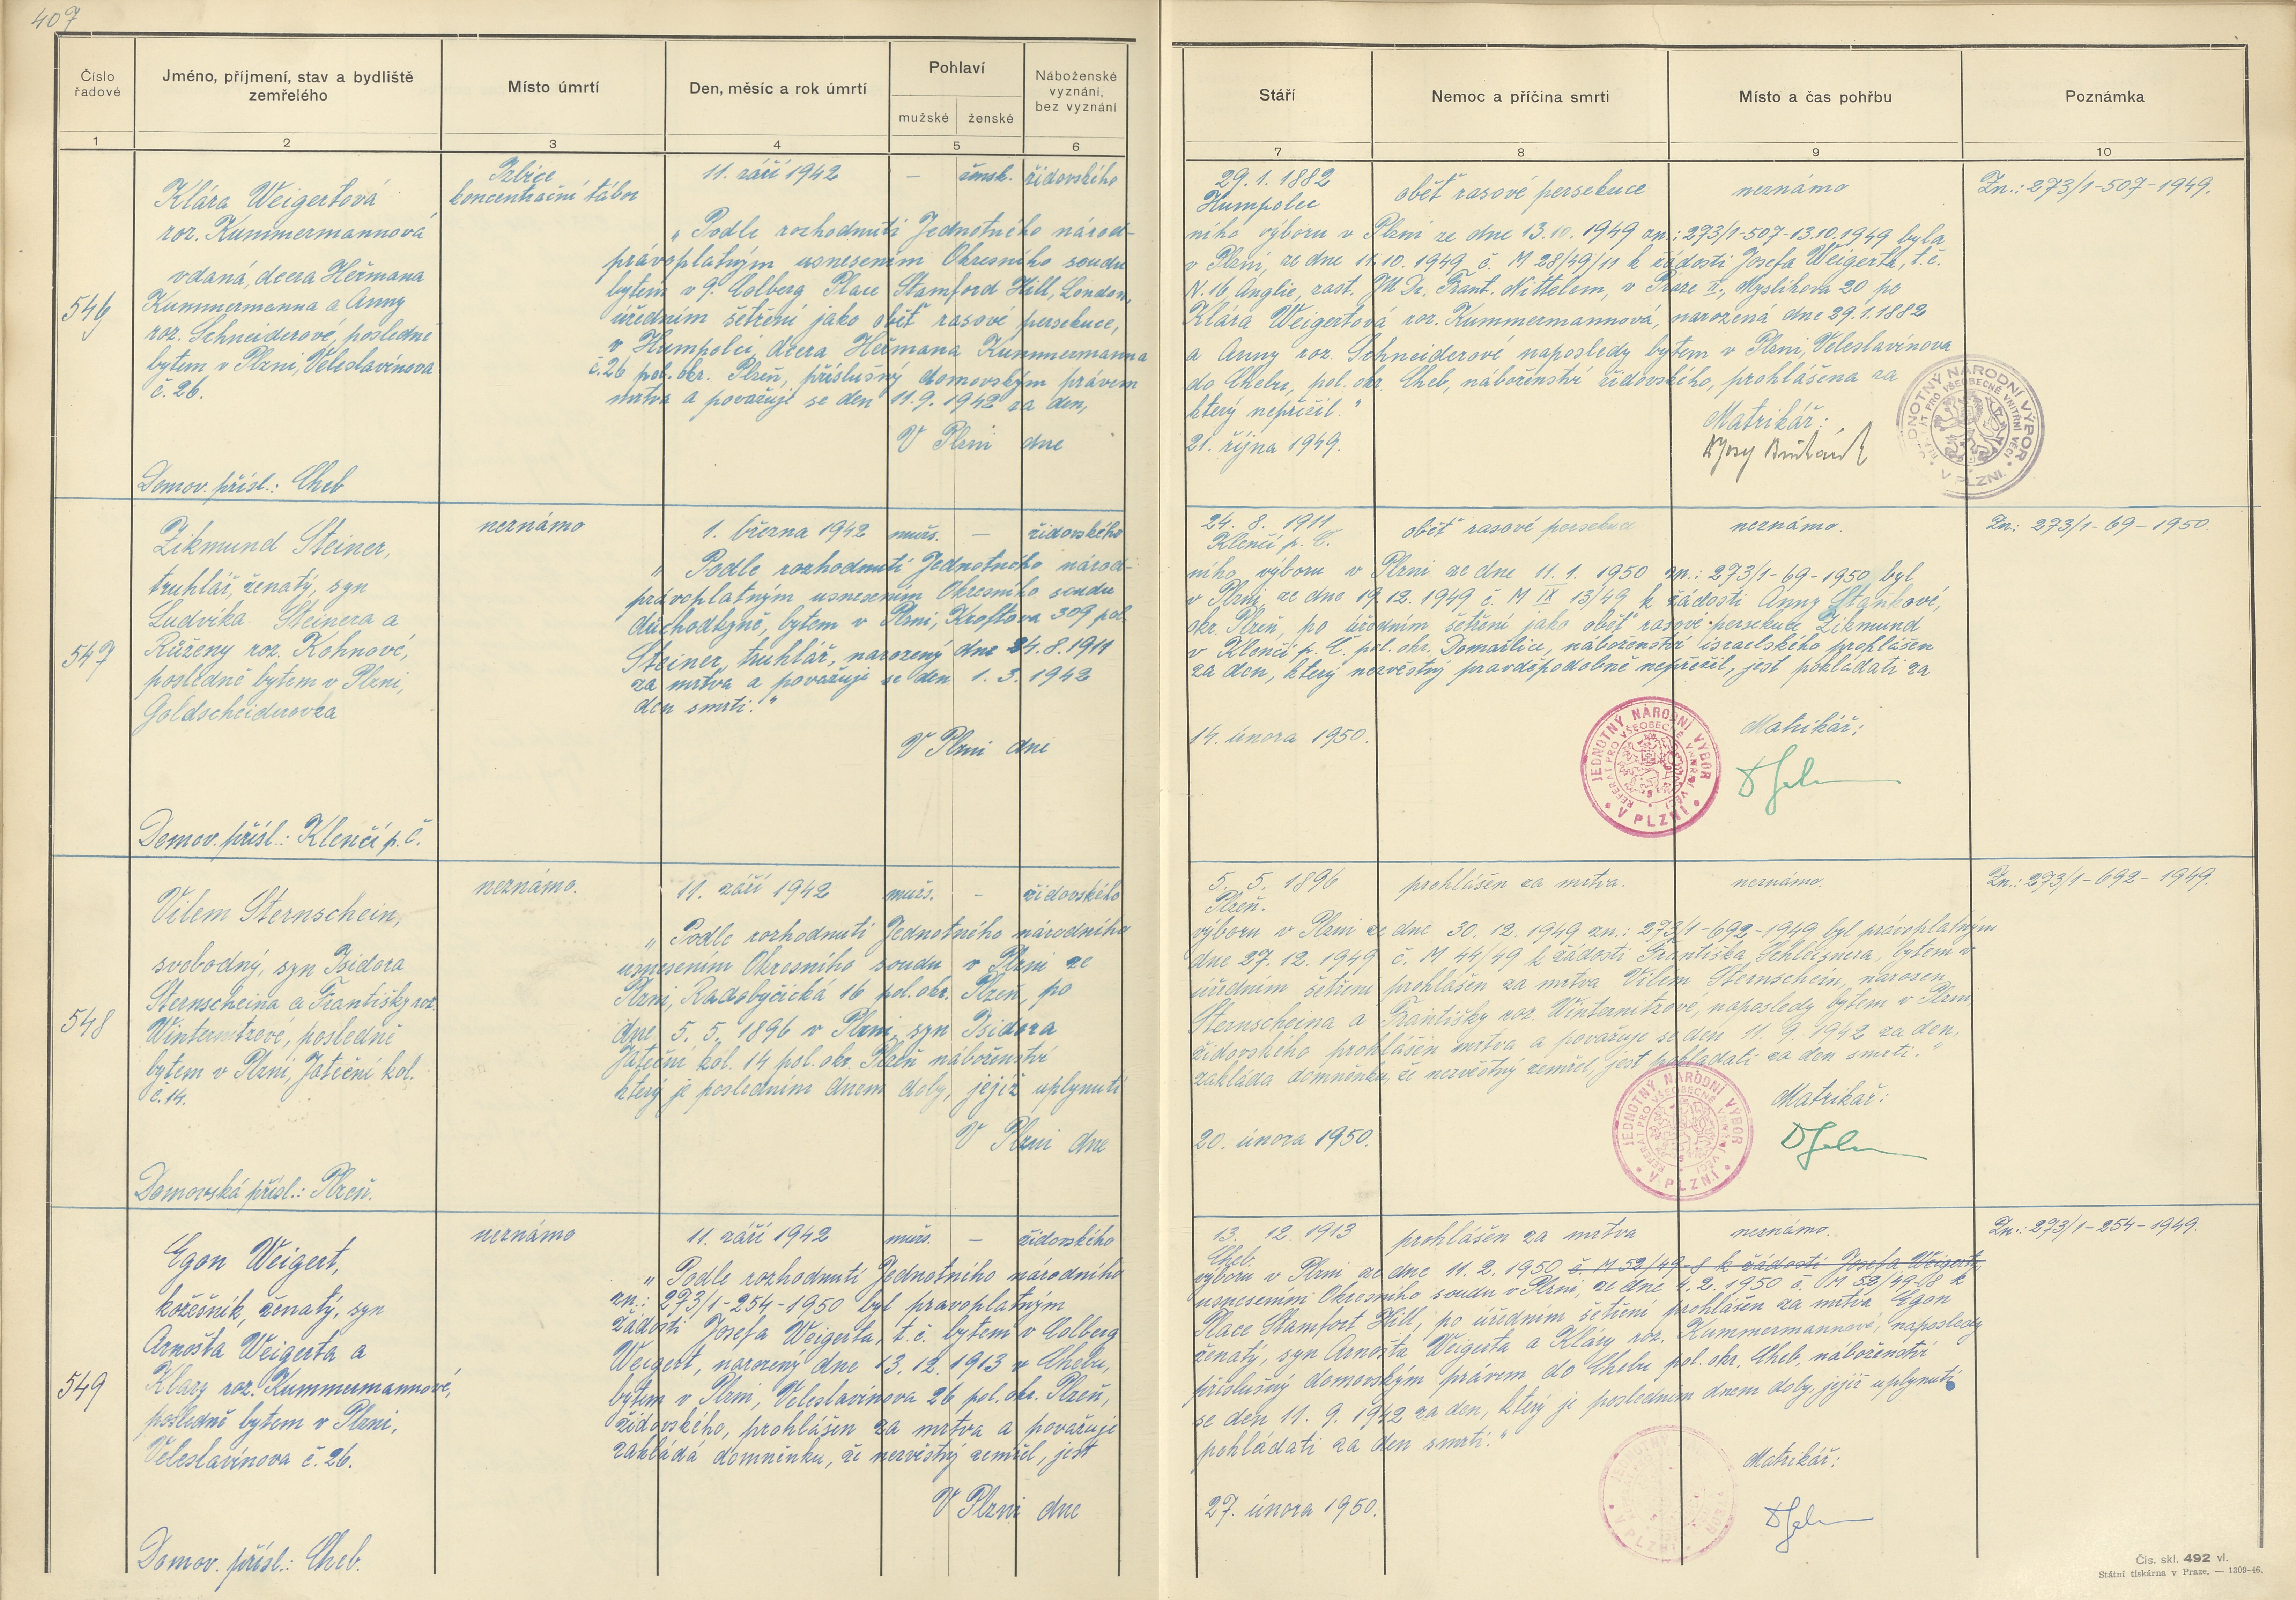 407
Číslo
řadové
Jméno, příjmení, stav a bydliště
zemřelého
Místo úmrtí
Den, měsíc a rok úmrtí
Pohlaví
mužské
ženské
Náboženské
vyznání,
bez vyznání
Stáří
Nemoc a příčina smrti
Místo a čas pohřbu
Poznámka
1
2
3
4
5
6
7
8
9
10
546
Klára Weigertová
roz. Kummermannová
vdaná, dcera Heřmana
Kummermanna a Anny
roz. Schneiderové, posledně
bytem v Plzni, Veleslavínova
č. 26.
Domov. přísl.: Cheb
Izbice
koncentrační tábor
11. září 1942
–
žensk.
židovského
29. 1. 1882
Humpolec
oběť rasové persekuce
neznámo
Zn.: 273/1-507-1949.
„Podle rozhodnutí Jednotného národ- ního výboru v Plzni ze dne 13.10. 1949 zn.: 273/1-507-13.10.1949 byla
právoplatným usnesením Okresního soudu v Plzni, ze dne 11.10. 1949 č. M 28/49/11 k žádosti Josefa Weigerta, t. č.
bytem v 9. Colberg Place Stamford Hill, London, N. 16 Anglie, zast. JU Dr. Frant. Nittelem, v Praze II., Myslíkova 20 po
úředním šetření jako oběť rasové persekuce, Klára Weigertová roz. Kummermannová, narozená dne 29.1.1882
v Humpolci, dcera Heřmana Kummermanna a Anny roz. Schneiderové naposledy bytem v Plzni, Veleslavínova
č. 26 pol. okr. Plzeň, příslušný domovským právem do Chebu, pol. okr. Cheb, náboženství židovského, prohlášena za
mrtva a považuje se den 11. 9. 1942 za den, který nepřežil."
V Plzni dne 21. října 1949.
Matrikář:
JEDNOTNÝ NÁRODNÍ VÝBOR
V PLZNI
547
Zikmund Steiner,
truhlář, ženatý, syn
Ludvíka Steinera a
Růženy roz. Kohnové,
posledně bytem v Plzni,
Goldscheiderovka
Domov. přísl.: Klenčí p. Č.
neznámo
1. března 1942
muž.
–
židovského
24. 8. 1911
Klenčí p. Č.
oběť rasové persekuce
neznámo.
Zn.: 273/1-69-1950.
„Podle rozhodnutí Jednotného národ- ního výboru v Plzni ze dne 11. 1. 1950 zn.: 273/1-69-1950, byl
právoplatným usnesením Okresního soudu v Plzni ze dne 19.12. 1949 č. M IX 13/49 k žádosti Anny Staňkové,
důchodkyně, bytem v Plzni, Kroftova 309 pol. okr. Plzeň, po úředním šetření jako oběť rasové persekuce Zikmund
Steiner, truhlář, narozený dne 24. 8. 1911 v Klenčí p. Č. pol. okr. Domažlice, náboženství israelského prohlášen
za mrtva a považuje se den 1. 3. 1942 za den, který nezvěstný pravděpodobně nepřežil, jest pokládati za
den smrti."
V Plzni dne 14. února 1950.
Matrikář:
JEDNOTNÝ NÁRODNÍ VÝBOR
REFERÁT PRO VŠEOBECNÉ VNITŘNÍ VĚCI
V PLZNI
548
Vilem Sternschein,
svobodný, syn Isidora
Sternscheina a Františky roz.
Winternitzové, posledně
bytem v Plzni, Jateční kol.
č. 14.
Domovská přísl.: Plzeň.
neznámo.
11. září 1942
muž.
–
židovského
5. 5. 1896
Plzeň.
prohlášen za mrtva.
neznámo.
Zn.: 273/1-692-1949.
„Podle rozhodnutí Jednotného národního výboru v Plzni ze dne 30. 12. 1949 zn.: 273/1-692-1949 byl právoplatným
usnesením Okresního soudu v Plzni ze dne 27. 12. 1949 č. M 44/49 k žádosti Františka Schleisnera, bytem v
Plzni, Radobyčická 16 pol. okr. Plzeň, po úředním šetření prohlášen za mrtva Vilem Sternschein, narozen
dne 5. 5. 1896 v Plzni, syn Isidora Sternscheina a Františky roz. Winternitzové, naposledy bytem v Plzni
Jateční kol. 14 pol. okr. Plzeň náboženství židovského prohlášen mrtva a považuje se den 11. 9. 1942 za den,
který je posledním dnem doby, jejíž uplynutí zakládá domněnku, že nezvěstný zemřel, jest pokládati za den smrti."
V Plzni dne 20. února 1950.
Matrikář:
JEDNOTNÝ NÁRODNÍ VÝBOR
REFERÁT PRO VŠEOBECNÉ VNITŘNÍ VĚCI
V PLZNI
549
Egon Weigert,
kožešník, ženatý, syn
Arnošta Weigerta a
Kláry roz. Kummermannové,
posledně bytem v Plzni,
Veleslavínova č. 26.
Domov. přísl.: Cheb.
neznámo
11. září 1942
muž.
–
židovského
13. 12. 1913
Cheb.
prohlášen za mrtva
neznámo.
Zn.: 273/1-254-1949.
„Podle rozhodnutí Jednotného národního výboru v Plzni ze dne 11. 2. 1950 č. M 52/49-8 k žádosti Josefa Weigerta,
zn.: 273/1-254-1950 byl pravoplatným usnesením Okresního soudu v Plzni, ze dne 4. 2. 1950 č. M 52/49-08 k
žádosti Josefa Weigerta, t. č. bytem v Colberg Place Stamfort Hill, po úředním šetření prohlášen za mrtva Egon
Weigert, narozený dne 13. 12. 1913 v Chebu, ženatý, syn Arnošta Weigerta a Kláry roz. Kummermannové, naposledy
bytem v Plzni, Veleslavínova 26 pol. okr. Plzeň, příslušný domovským právem do Chebu pol. okr. Cheb, náboženství
židovského, prohlášen za mrtva a považuje se den 11. 9. 1942 za den, který je posledním dnem doby, jejíž uplynutí
zakládá domněnku, že nezvěstný zemřel, jest pokládati za den smrti."
V Plzni dne 27. února 1950.
Matrikář:
V PLZNI
Čís. skl. 492 vl.
Státní tiskárna v Praze. — 1309-46.